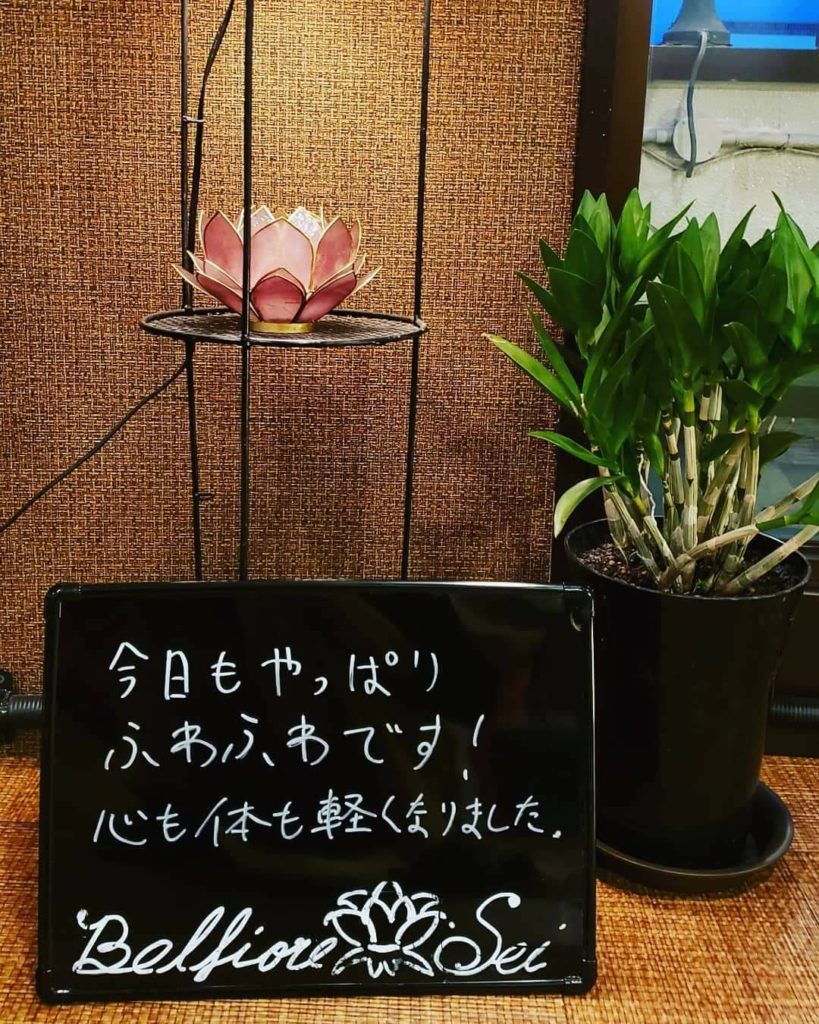 今日もやっぱり
ふわふわです!
心も体も軽くなりました.
Belfiore Sei